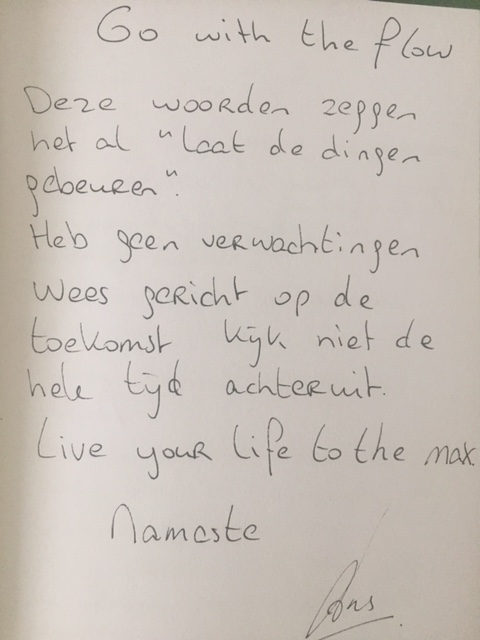 Go with the flow
Deze woorden zeggen
het al "laat de dingen
gebeuren".
Heb geen verwachtingen
Wees gericht op de
toekomst kijk niet de
hele tijd achteruit.
Live your life to the max
Namaste